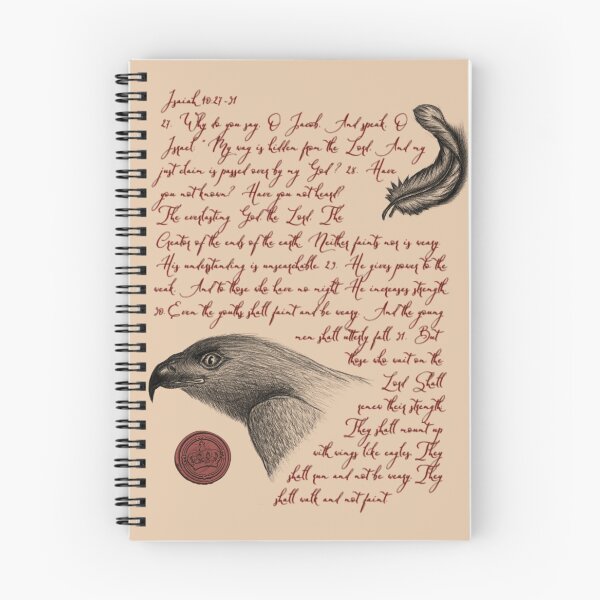 Isaiah 40:27-31
27. Why do you say, O Jacob, And speak, O
Israel: "My way is hidden from the Lord, And my
just claim is passed over by my God"? 28. Have
you not known? Have you not heard?
The everlasting God the Lord, The
Creator of the ends of the earth, Neither faints nor is weary.
His understanding is unsearchable. 29. He gives power to the
weak, And to those who have no might He increases strength.
30. Even the youths shall faint and be weary, And the young
men shall utterly fall, 31. But
those who wait on the
Lord Shall
renew their strength;
They shall mount up
with wings like eagles, They
shall run and not be weary, They
shall walk and not faint.